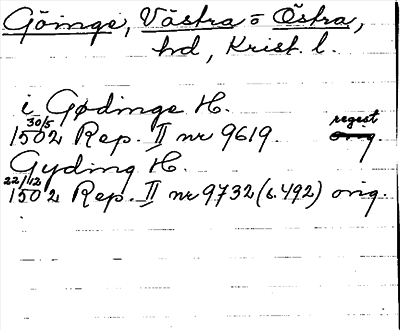 Göinge, Västra o Östra,
hd, Krist. l.
i Gødinge H.
30/5 regest
1502 Rep. II nr 9619. orig.
Gyding H.
22/12
1502 Rep. II nr 9732 (s. 492) orig.